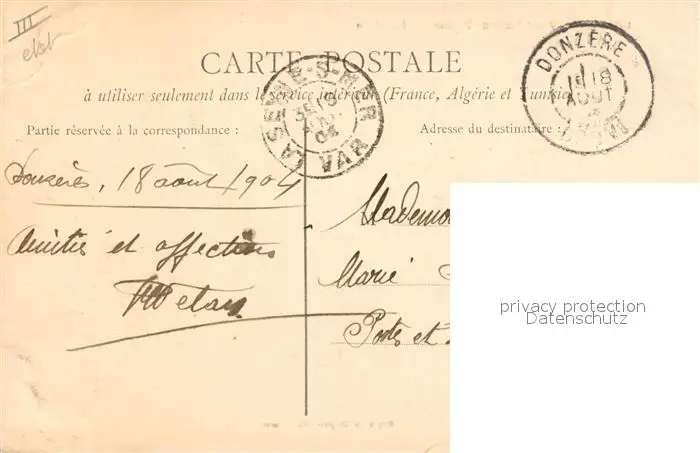 III
CARTE POSTALE
à utiliser seulement dans le service intérieur (France, Algérie et Tunisie)
Partie réservée à la correspondance :
Adresse du destinataire :
LA SEYNE-S-MER
VAR
DONZÈRE
18
AOUT
Donzère, 18 août 1904
Amitiés et affection
Mademoi
Marie
Postes et
privacy protection
Datenschutz